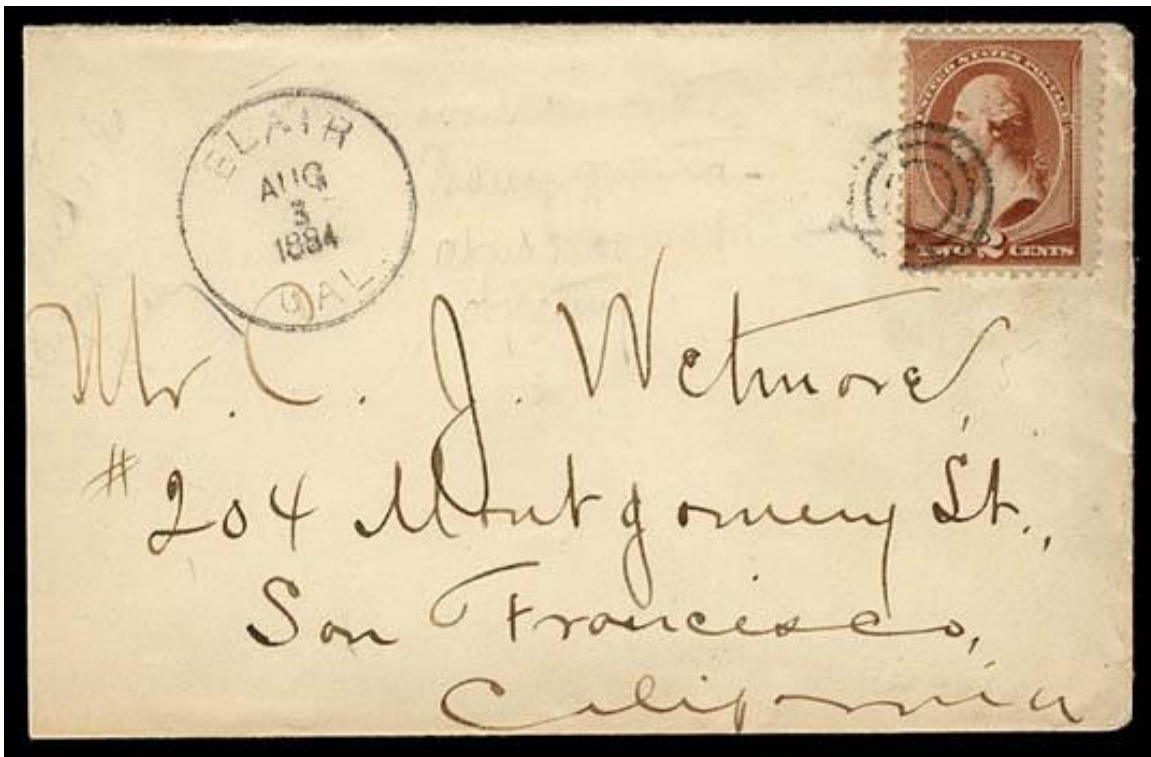 BLAIR
AUG
3
1884
CAL.
UNITED STATES POSTAGE
TWO 2 CENTS
Mr. C. J. Wetmore,
# 204 Montgomery St.,
San Francisco,
California